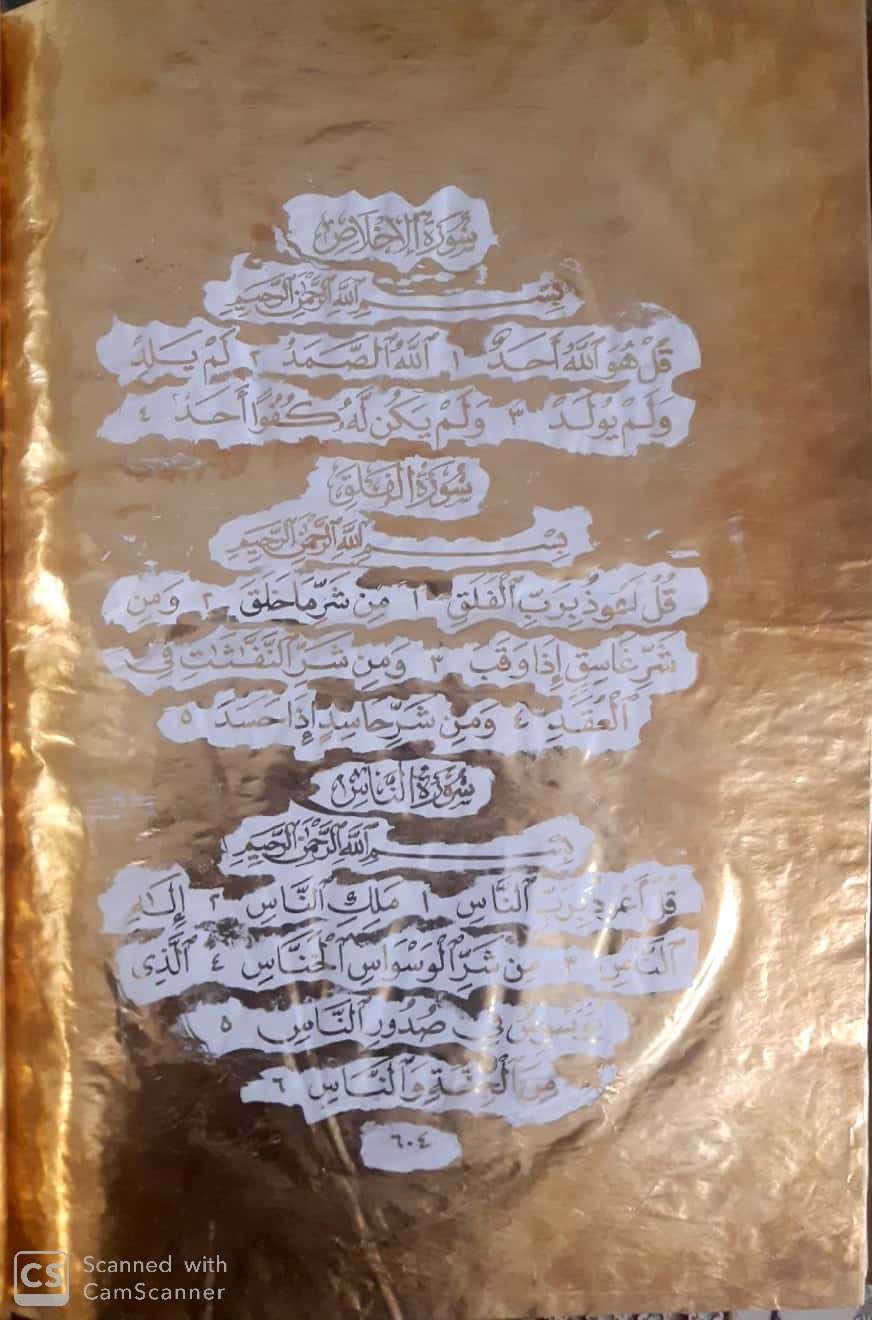 سُورَةُ الإِخْلَاصِ
بِسْمِ اللَّهِ الرَّحْمَٰنِ الرَّحِيمِ
قُلْ هُوَ ٱللَّهُ أَحَدٌ ١ ٱللَّهُ ٱلصَّمَدُ ٢ لَمْ يَلِدْ
وَلَمْ يُولَدْ ٣ وَلَمْ يَكُن لَّهُۥ كُفُوًا أَحَدٌۢ ٤
سُورَةُ الْفَلَقِ
بِسْمِ اللَّهِ الرَّحْمَٰنِ الرَّحِيمِ
قُلْ أَعُوذُ بِرَبِّ ٱلْفَلَقِ ١ مِن شَرِّ مَا خَلَقَ ٢ وَمِن
شَرِّ غَاسِقٍ إِذَا وَقَبَ ٣ وَمِن شَرِّ ٱلنَّفَّٰثَٰتِ فِى
ٱلْعُقَدِ ٤ وَمِن شَرِّ حَاسِدٍ إِذَا حَسَدَ ٥
سُورَةُ النَّاسِ
بِسْمِ اللَّهِ الرَّحْمَٰنِ الرَّحِيمِ
قُلْ أَعُوذُ بِرَبِّ ٱلنَّاسِ ١ مَلِكِ ٱلنَّاسِ ٢ إِلَٰهِ
ٱلنَّاسِ ٣ مِن شَرِّ ٱلْوَسْوَاسِ ٱلْخَنَّاسِ ٤ ٱلَّذِى
يُوَسْوِسُ فِى صُدُورِ ٱلنَّاسِ ٥
مِنَ ٱلْجِنَّةِ وَٱلنَّاسِ ٦
٦٠٤
CS Scanned with
CamScanner